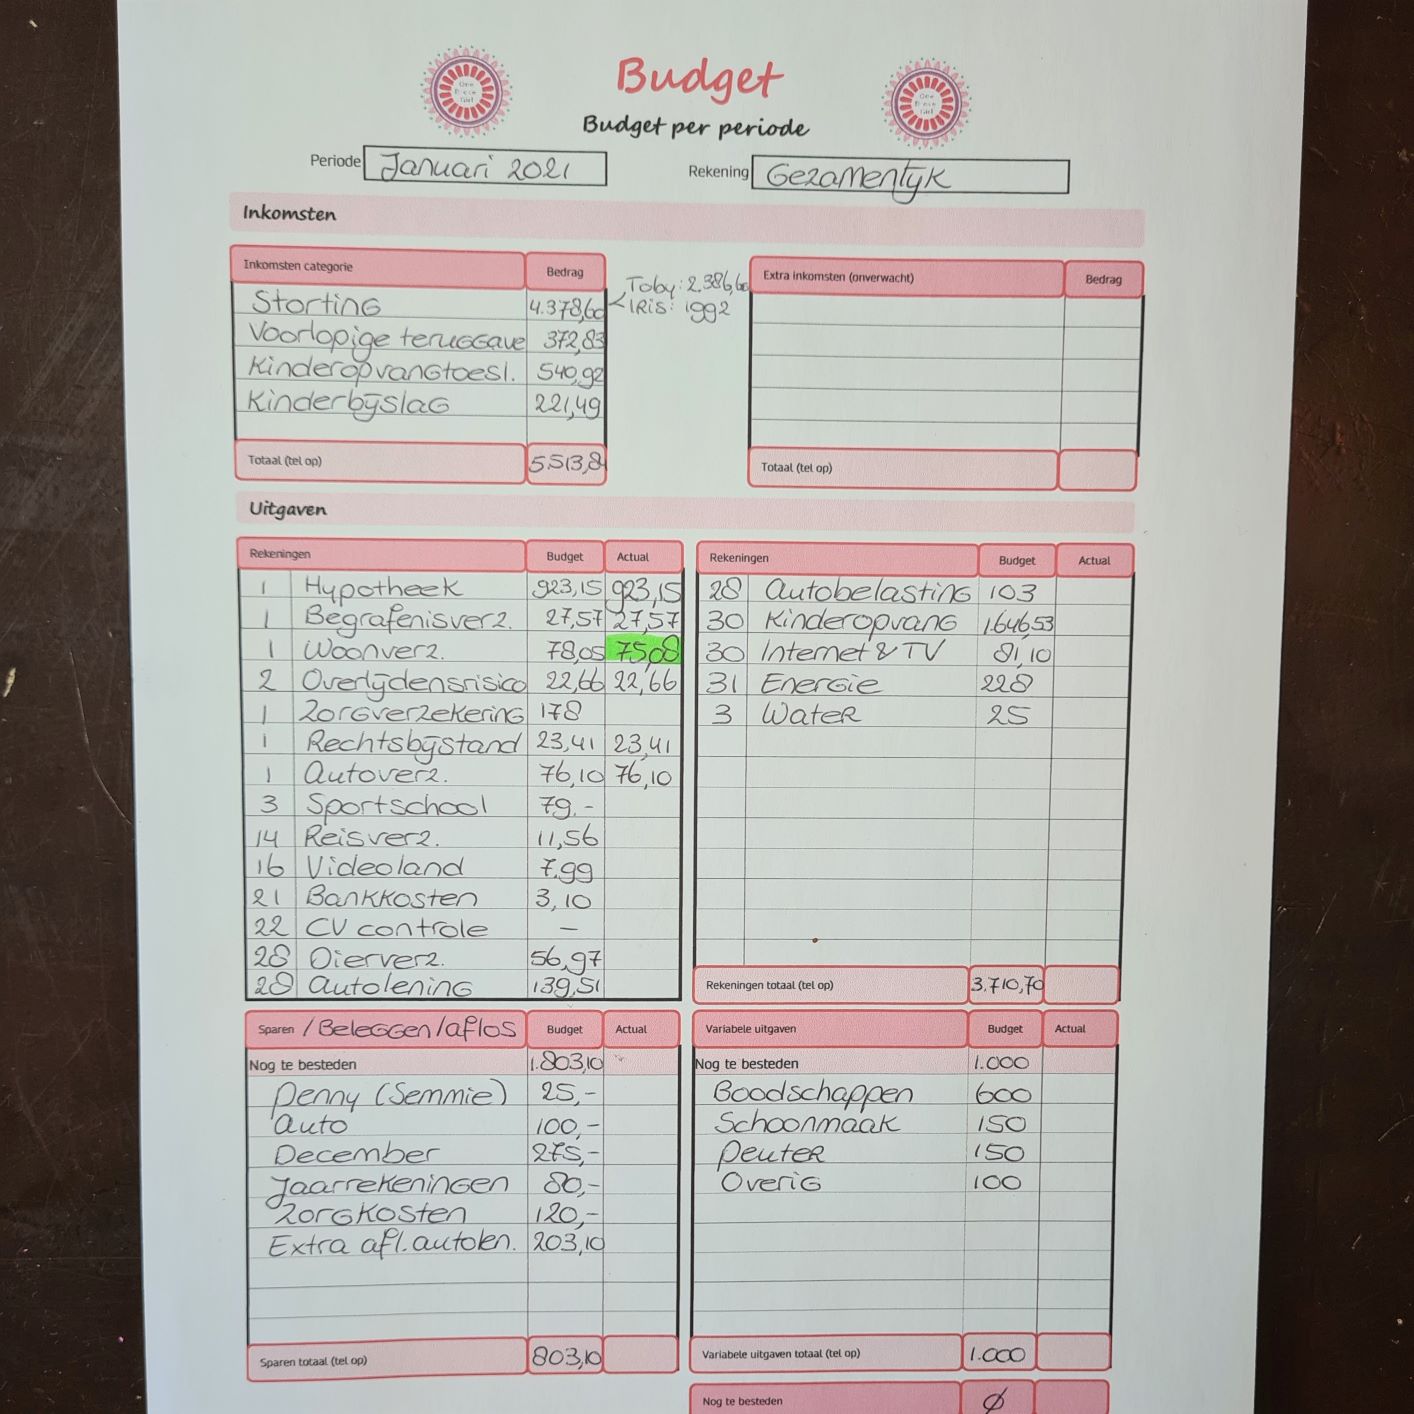 Budget
Budget per periode
Periode Januari 2021
Rekening Gezamenlijk
Inkomsten
Inkomsten categorie Bedrag
Storting 4.378,60
Toby: 2.386,60
IRIS: 1992
Voorlopige teruggave 372,83
Kinderopvangtoesl. 540,92
Kinderbijslag 221,49
Totaal (tel op) 5513,8
Extra inkomsten (onverwacht) Bedrag
Totaal (tel op)
Uitgaven
Rekeningen Budget Actual
1 Hypotheek 923,15 923,15
1 Begrafenisverz. 27,57 27,57
1 Woonverz. 78,05 75,08
2 Overlijdensrisico 22,66 22,66
1 Zorgverzekering 178
1 Rechtsbijstand 23,41 23,41
1 Autoverz. 76,10 76,10
3 Sportschool 79,-
14 Reisverz. 11,56
16 Videoland 7,99
21 Bankkosten 3,10
22 CV controle –
28 Dierverz. 56,97
28 Autolening 139,51
Rekeningen Budget Actual
28 Autobelasting 103
30 Kinderopvang 1.646,53
30 Internet & TV 81,10
31 Energie 228
3 Water 25
Rekeningen totaal (tel op) 3.710,70
Sparen / Beleggen / aflos Budget Actual
Nog te besteden 1.803,10
Penny (Semmie) 25,-
Auto 100,-
December 275,-
Jaarrekeningen 80,-
Zorgkosten 120,-
Extra afl. autolen. 203,10
Sparen totaal (tel op) 803,10
Variabele uitgaven Budget Actual
Nog te besteden 1.000
Boodschappen 600
Schoonmaak 150
Peuter 150
Overig 100
Variabele uitgaven totaal (tel op) 1.000
Nog te besteden Ø